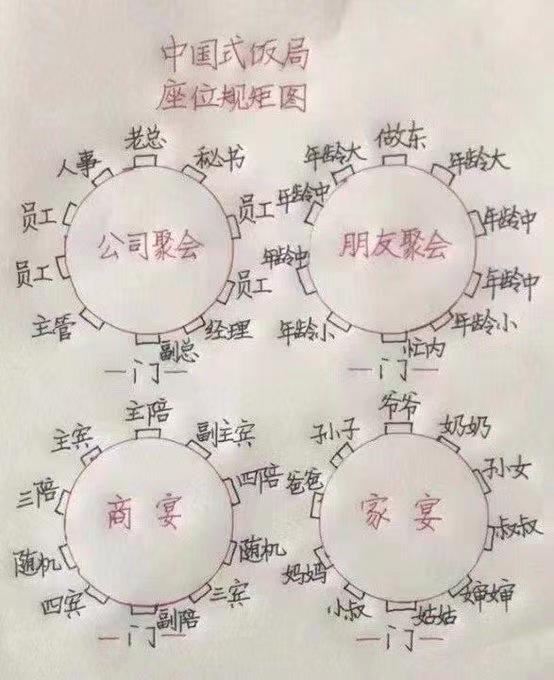 中国式饭局
座位规矩图
老总
人事
秘书
员工
员工
公司聚会
员工
员工
主管
经理
副总
一门一
做东
年龄大
年龄大
年龄中
年龄中
朋友聚会
年龄中
年龄中
年龄小
年龄小
忙内
一门一
主陪
主宾
副主宾
三陪
四陪
商宴
随机
随机
四宾
三宾
副陪
一门一
爷爷
孙子
奶奶
爸爸
孙女
家宴
叔叔
妈妈
婶婶
小叔
姑姑
一门一